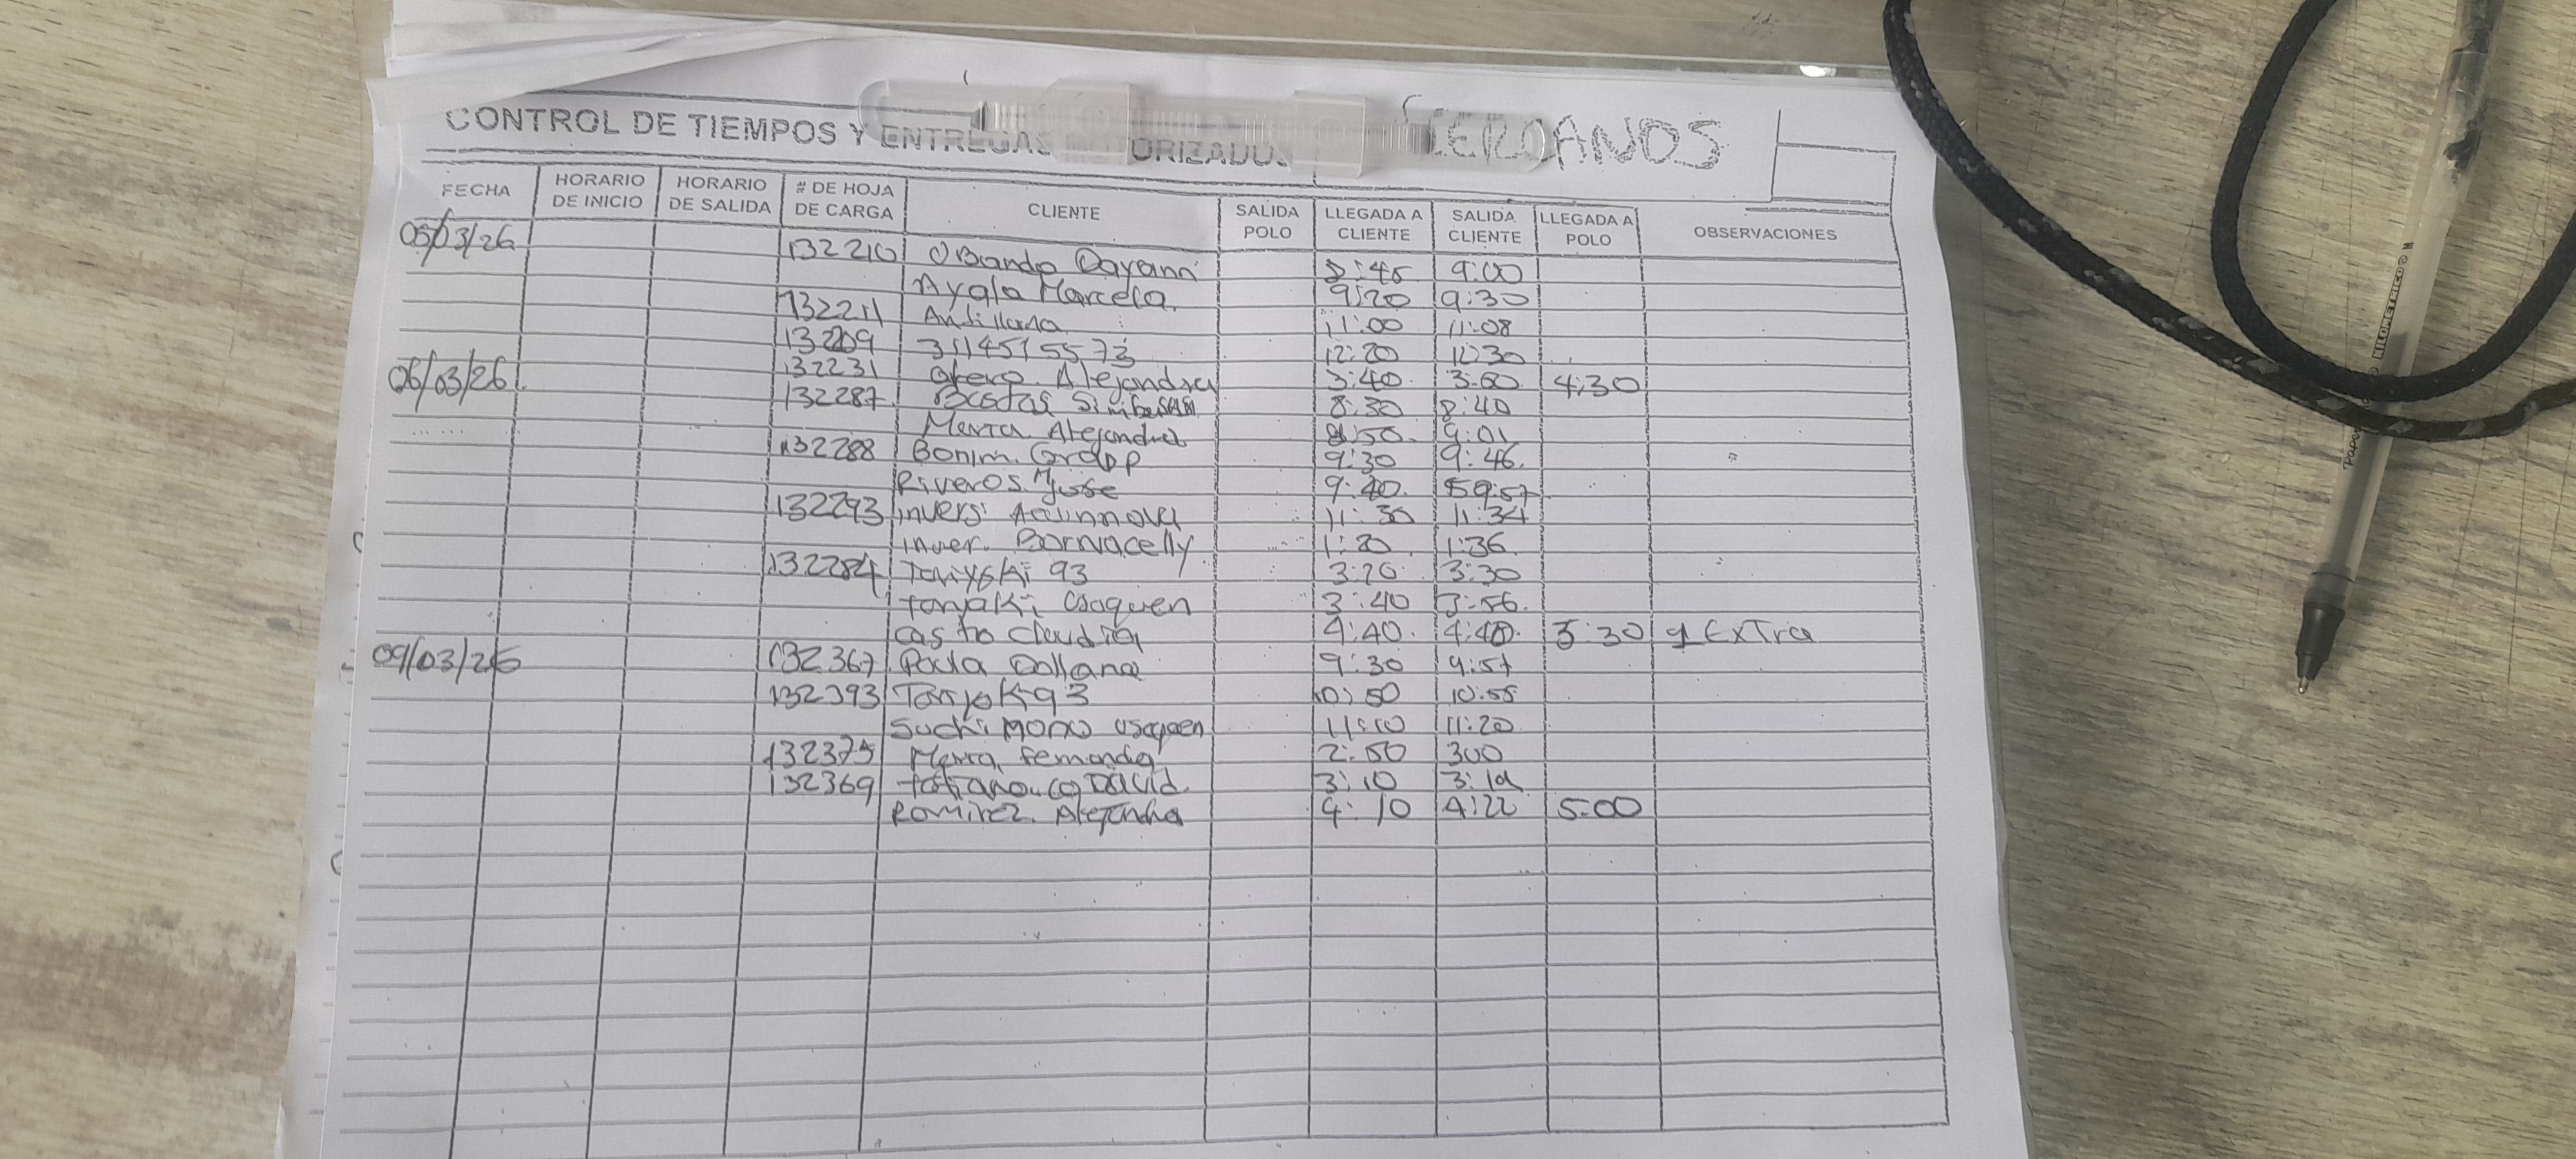 CONTROL DE TIEMPOS Y ENTREGAS MOTORIZADOS
FECHA HORARIO DE INICIO HORARIO DE SALIDA # DE HOJA DE CARGA CLIENTE SALIDA POLO LLEGADA A CLIENTE SALIDA CLIENTE LLEGADA A POLO OBSERVACIONES
05/03/26 132210 Obando Dayann 8:45 9:00
Ayala Marcela 9:20 9:30
132211 Antillana 11:00 11:08
132209 3114515573 12:20 12:30
132231 Otero Alejandra 3:40 3:50 4:30
06/03/26 132287 8:30 8:40
Maria Alejandra 8:50 9:01
132288 Bonim Group 9:30 9:46
Riveros 9:40 9:57
132293 invers 11:30 11:34
inver. Bornacelly 1:20 1:36
132284 93 3:20 3:30
Usaquen 3:40 3:56
Castro Claudia 4:40 5:30 1 ExTra
09/03/26 132367 Paula 9:30 9:57
132393 93 10:50 10:55
Usaquen 11:10 11:20
132375 Maria Fernanda 2:50 300
132369 David 3:10
Ramirez Alejandra 4:10 4:22 5:00
KILOMETRICO